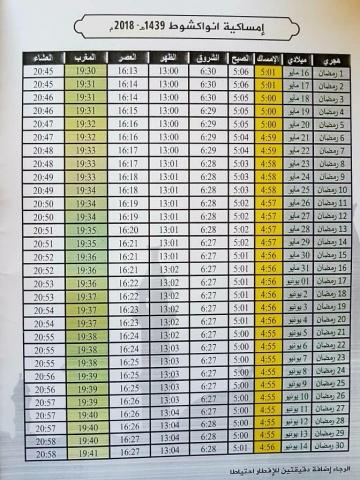 إمساكية انواكشوط 1439هـ - 2018م
هجري ميلادي الإمساك الصبح الشروق الظهر العصر المغرب العشاء
1 رمضان 16 مايو 5:01 5:06 6:30 13:00 16:13 19:30 20:45
2 رمضان 17 مايو 5:01 5:06 6:30 13:00 16:13 19:30 20:45
3 رمضان 18 مايو 5:00 5:05 6:29 13:00 16:14 19:31 20:46
4 رمضان 19 مايو 5:00 5:05 6:29 13:00 16:15 19:31 20:46
5 رمضان 20 مايو 5:00 5:05 6:29 13:00 16:15 19:32 20:47
6 رمضان 21 مايو 4:59 5:04 6:29 13:00 16:16 19:32 20:47
7 رمضان 22 مايو 4:59 5:04 6:28 13:00 16:16 19:32 20:48
8 رمضان 23 مايو 4:58 5:03 6:28 13:01 16:17 19:33 20:48
9 رمضان 24 مايو 4:58 5:03 6:28 13:01 16:18 19:33 20:49
10 رمضان 25 مايو 4:58 5:03 6:28 13:01 16:18 19:34 20:49
11 رمضان 26 مايو 4:57 5:02 6:28 13:01 16:19 19:34 20:50
12 رمضان 27 مايو 4:57 5:02 6:28 13:01 16:19 19:34 20:50
13 رمضان 28 مايو 4:57 5:02 6:27 13:01 16:20 19:35 20:51
14 رمضان 29 مايو 4:57 5:02 6:27 13:01 16:21 19:35 20:51
15 رمضان 30 مايو 4:56 5:01 6:27 13:01 16:21 19:36 20:52
16 رمضان 31 مايو 4:56 5:01 6:27 13:02 16:22 19:36 20:52
17 رمضان 01 يونيو 4:56 5:01 6:27 13:02 16:22 19:36 20:53
18 رمضان 2 يونيو 4:56 5:01 6:27 13:02 16:23 19:37 20:53
19 رمضان 3 يونيو 4:56 5:01 6:27 13:02 16:23 19:37 20:54
20 رمضان 4 يونيو 4:56 5:01 6:27 13:02 16:23 19:37 20:54
21 رمضان 5 يونيو 4:55 5:00 6:27 13:02 16:24 19:38 20:55
22 رمضان 6 يونيو 4:55 5:00 6:27 13:03 16:24 19:38 20:55
23 رمضان 7 يونيو 4:55 5:00 6:27 13:03 16:24 19:38 20:55
24 رمضان 8 يونيو 4:55 5:00 6:27 13:03 16:25 19:39 20:56
25 رمضان 9 يونيو 4:55 5:00 6:27 13:03 16:25 19:39 20:56
26 رمضان 10 يونيو 4:55 5:00 6:27 13:03 16:26 19:39 20:57
27 رمضان 11 يونيو 4:55 5:00 6:27 13:04 16:26 19:40 20:57
28 رمضان 12 يونيو 4:55 5:00 6:27 13:04 16:27 19:40 20:57
29 رمضان 13 يونيو 4:55 5:00 6:28 13:04 16:27 19:40 20:58
30 رمضان 14 يونيو 4:56 5:01 6:28 13:04 16:27 19:41 20:58
الرجاء إضافة دقيقتين للإفطار احتياطا